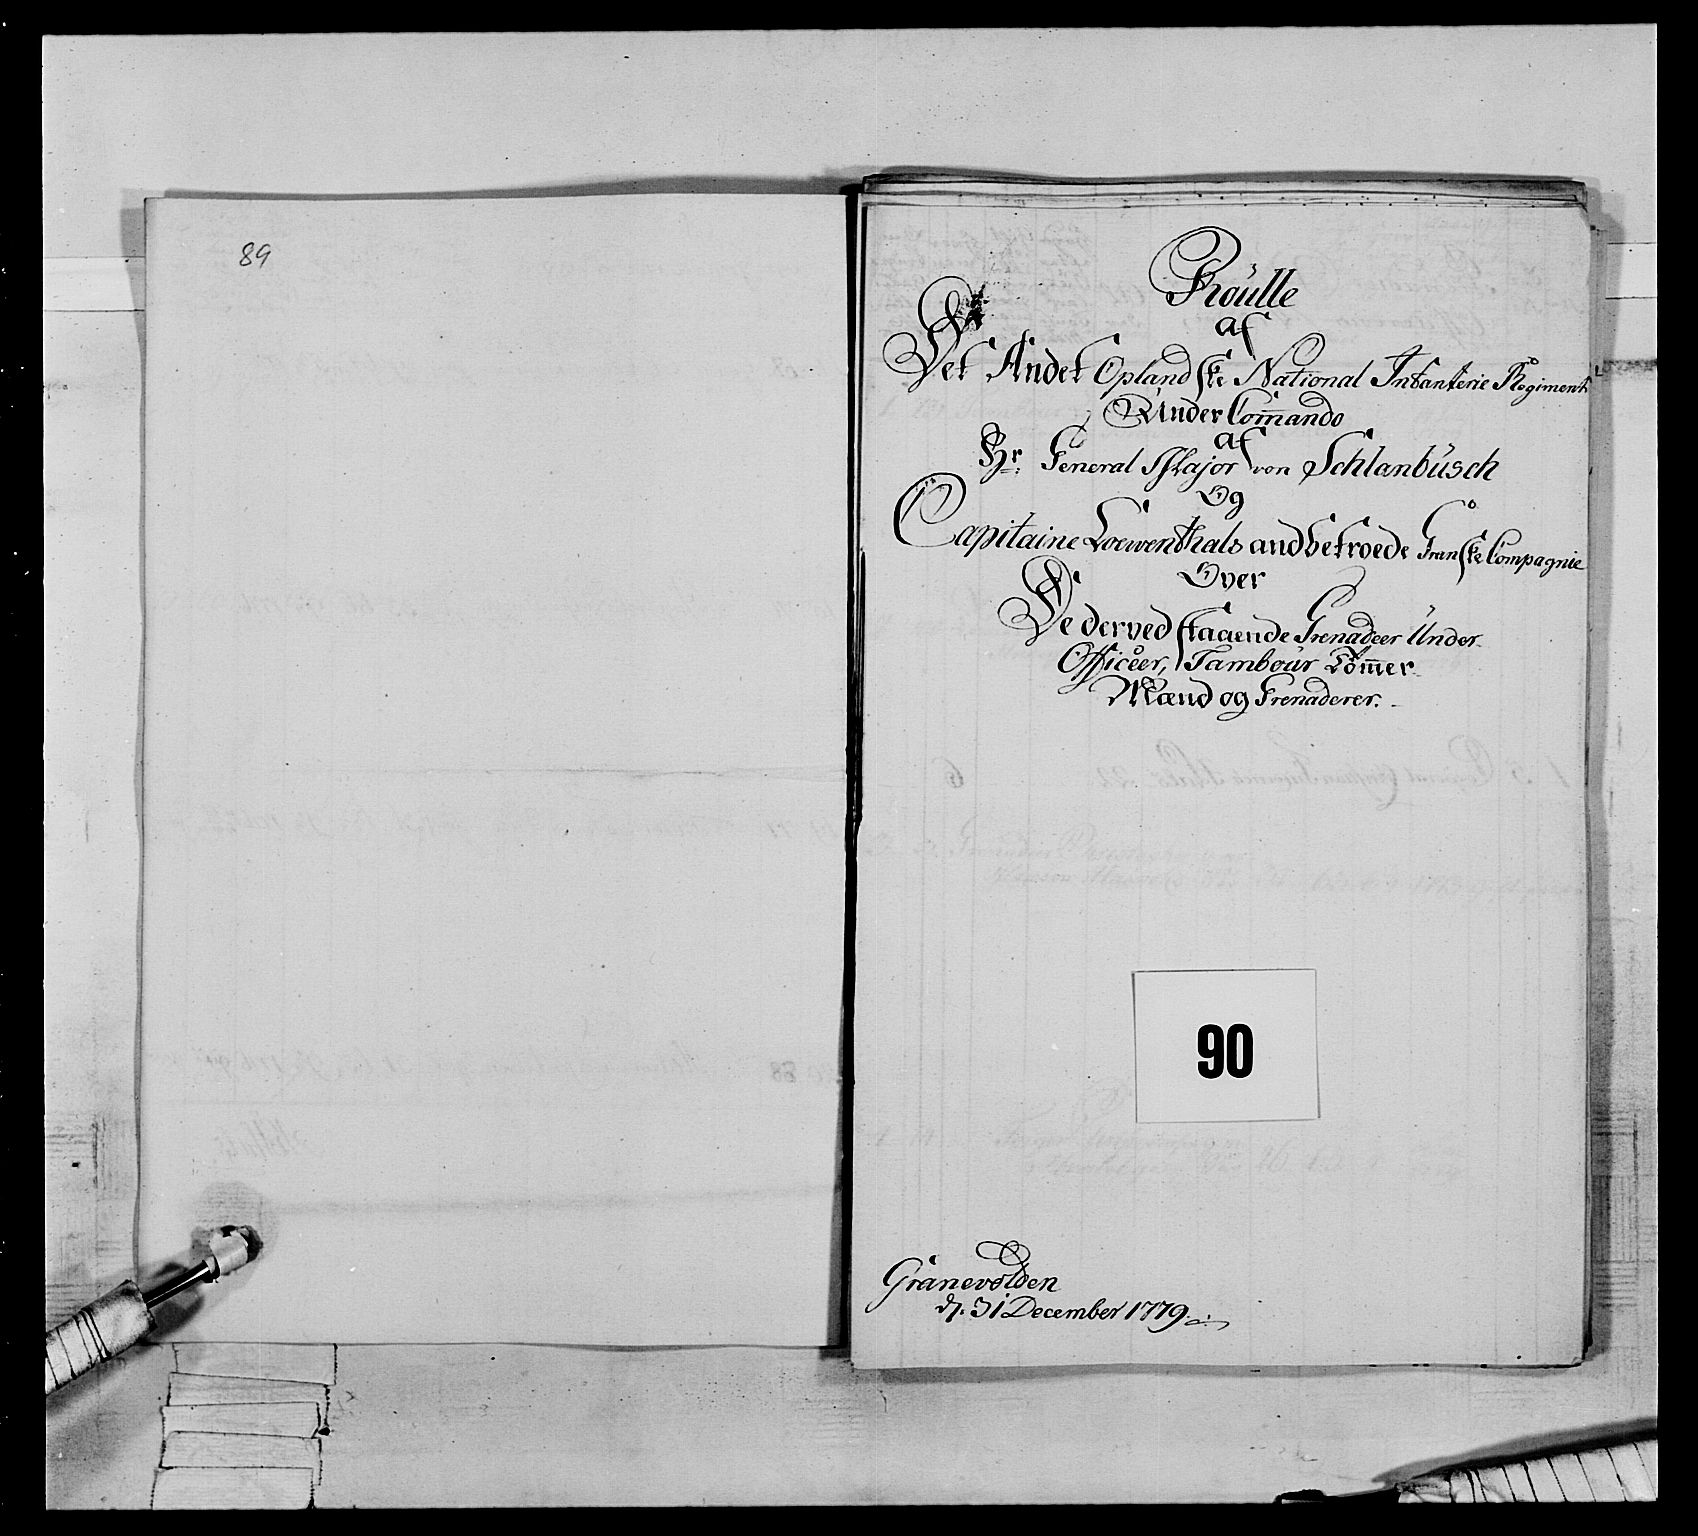 89
Roulle
af
Det Andet Oplandske National Infanterie Regiment
Under Com̄ando
af
Hr. General Major von Schlanbüsch
Og
Capitaine Loewenthals andbetroede Granske Compagnie
Over
De derved staaende Grenadeer Under
Officeer, Tambour Töm̄er
Mænd og Grenaderer.
90
Granevolden
d. 31 December 1779